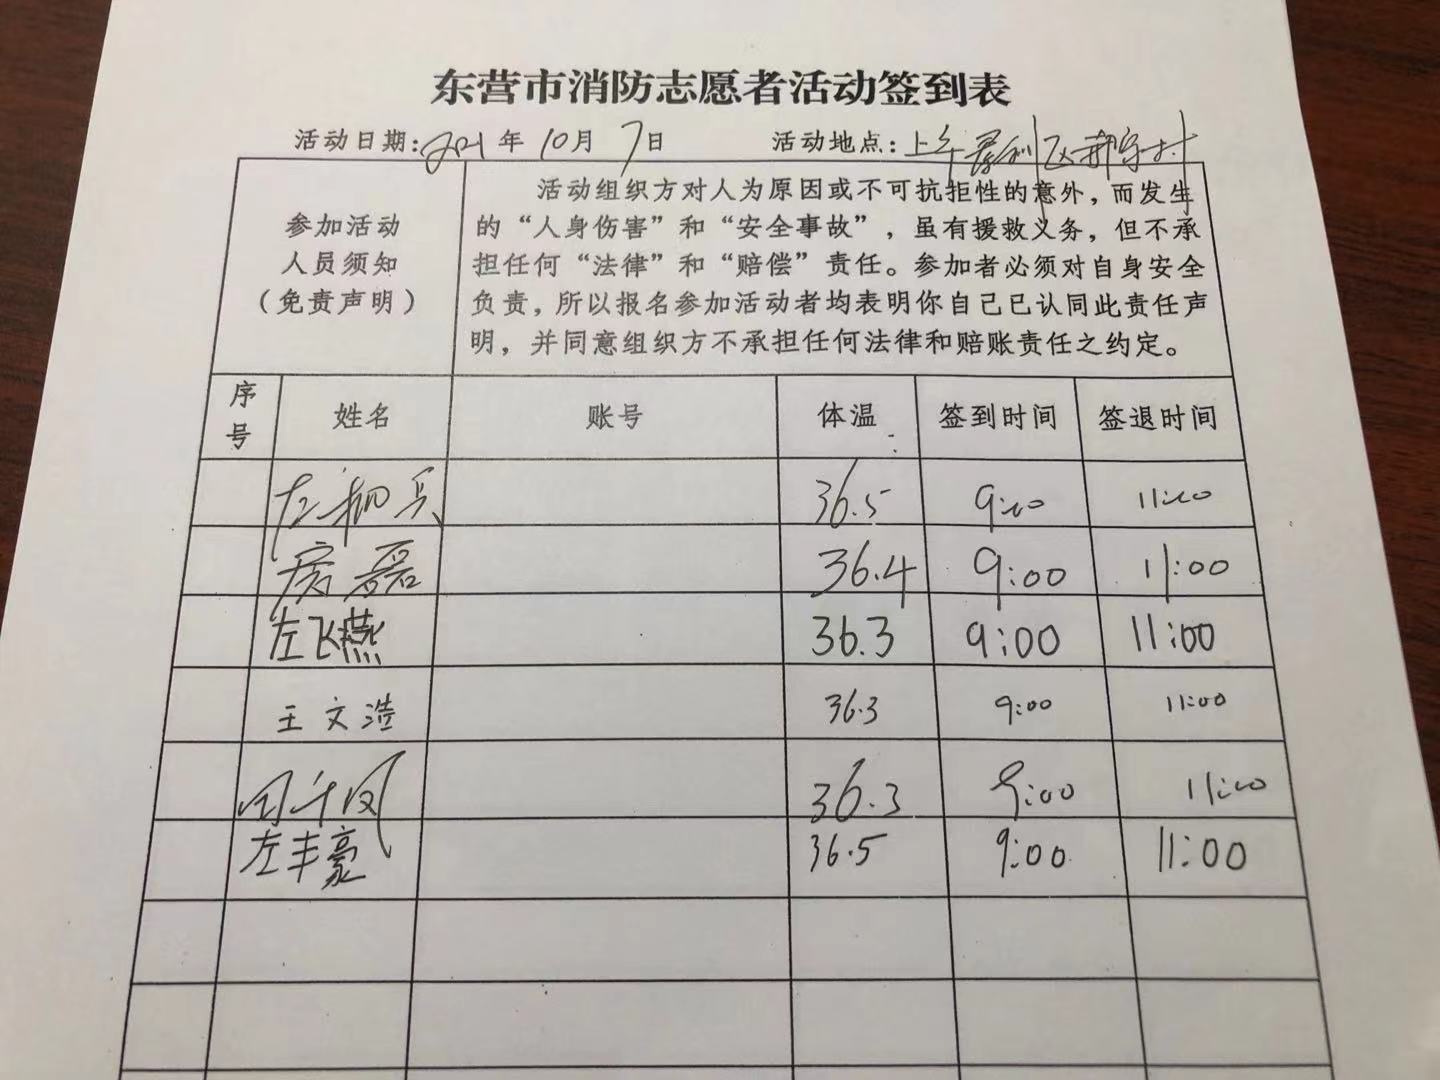 东营市消防志愿者活动签到表
活动日期:2021年10月7日 活动地点:上午垦利区郝家村
参加活动
人员须知
（免责声明）
活动组织方对人为原因或不可抗拒性的意外，而发生
的“人身伤害”和“安全事故”，虽有援救义务，但不承
担任何“法律”和“赔偿”责任。参加者必须对自身安全
负责，所以报名参加活动者均表明你自己已认同此责任声
明，并同意组织方不承担任何法律和赔账责任之约定。
序号 姓名 账号 体温 签到时间 签退时间
左 兵 36.5 9:00 11:00
房磊 36.4 9:00 11:00
左飞燕 36.3 9:00 11:00
王文浩 36.3 9:00 11:00
凤 36.3 9:00 11:00
左丰豪 36.5 9:00 11:00